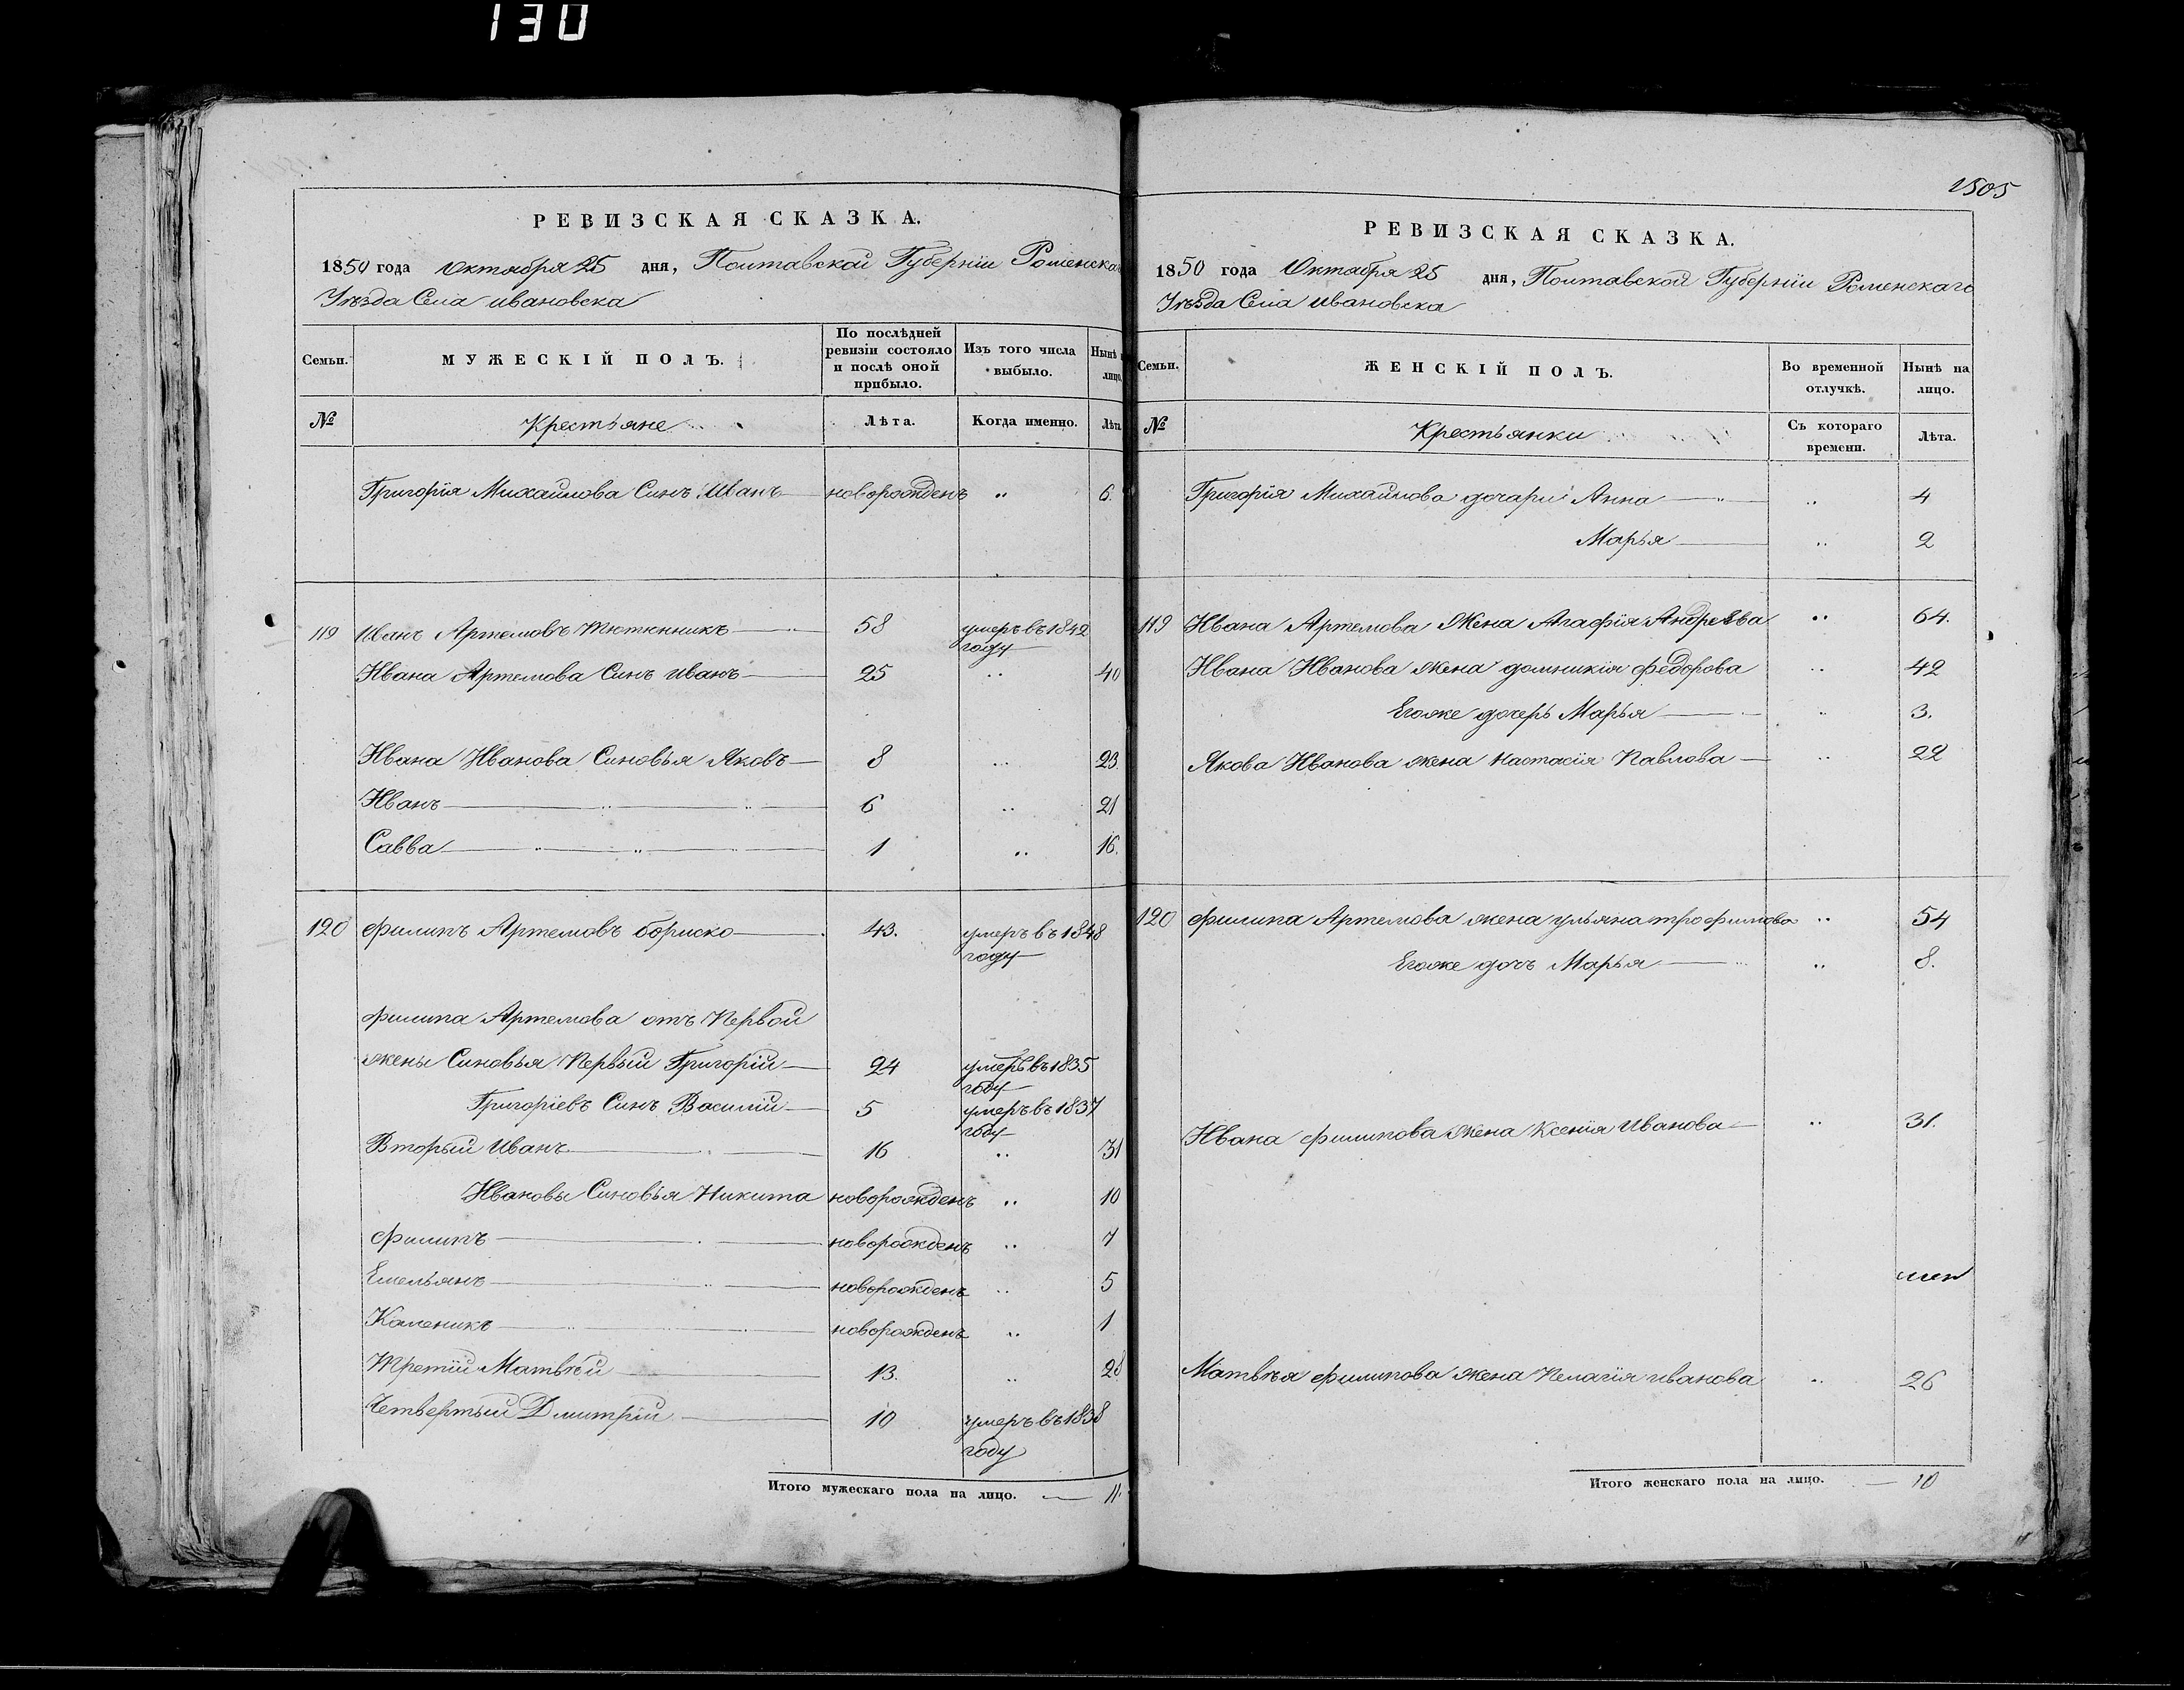 130
РЕВИЗСКАЯ СКАЗКА.
1850 года Октября 25 дня, Полтавской Губерніи Роменскаго
Уѣзда Села ивановска
Семьи. МУЖЕСКІЙ ПОЛЪ. По послѣдней ревизіи состояло и послѣ оной прибыло. Изъ того числа выбыло. Нынѣ на лицо.
№ Крестьяне Лѣта. Когда именно. Лѣта
Григорія Михайлова Синъ Иванъ новорожденъ „ 6.
119 Иванъ Артемовъ Тютюнникъ 58 умеръ въ 1842
году
Ивана Артемова Синъ иванъ 25 „ 40
Ивана Иванова Синовья Яковъ 8 „ 23.
Иванъ „ „ 6 „ 21
Савва „ „ „ 1 „ 16.
120 филипъ Артемовъ бориско 43. умеръ въ 1848
году
филипа Артемова отъ Первой
жены Синовья Первый Григорій 24 умеръ въ 1835
году
Григоріевъ Синъ Василій 5 умеръ въ 1837
году
Вторый Иванъ „ 16 „ 31
Ивановы Синовья Никита новорожденъ „ 10
филипъ новорожденъ „ 7
Емельянъ „ новорожденъ „ 5
Каленикъ „ „ новорожденъ „ 1
Третій Матвѣй 13. „ 28
Четвертый Дмитрій 10 умеръ въ 1838
году
Итого мужескаго пола на лицо. 11.
1505
РЕВИЗСКАЯ СКАЗКА.
1850 года Октября 25 дня, Полтавской Губерніи Роменскаго
Уѣзда Села ивановска
Семьи. ЖЕНСКІЙ ПОЛЪ. Во временной отлучкѣ. Нынѣ на лицо.
№ Крестьянки Съ котораго времени. Лѣта.
Григорія Михайлова дочери Анна „ „ 4
Марья „ 2
119 Ивана Артемова Жена Агафія Андреева „ 64.
Ивана Иванова жена домникія федорова „ 42
Егоже дочерь Марья „ 3.
Якова Иванова жена настасія Павлова „ 22
120 филипа Артемова жена ульяна трофимова „ 54
Егоже дочь Марья „ 8.
Ивана филипова жена Ксенія Иванова „ 31.
Матвѣя филипова жена Пелагія иванова „ 26
Итого женскаго пола на лицо. 10